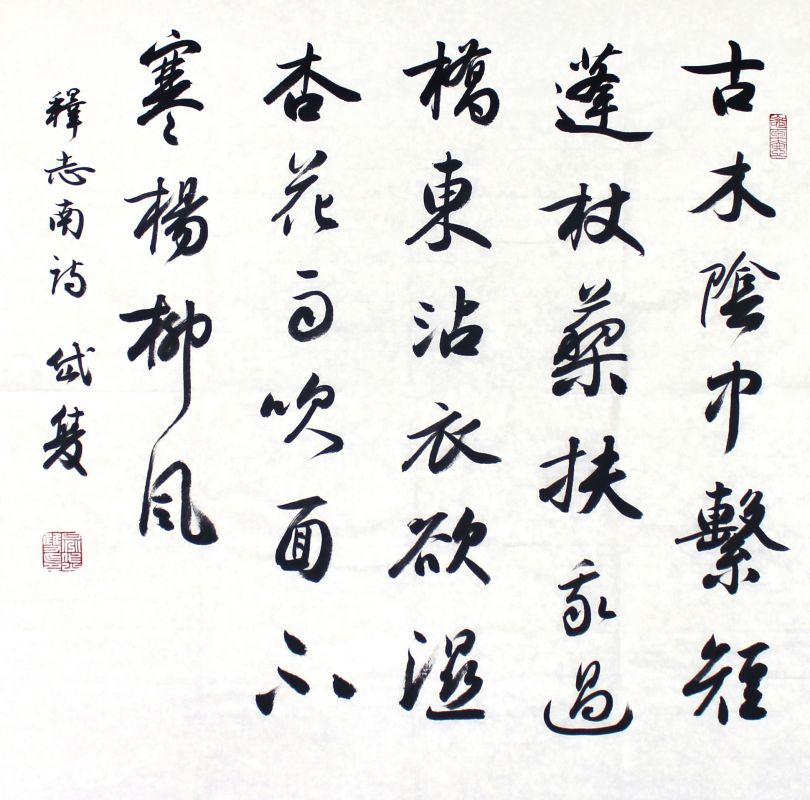 古木陰中繫短
蓬杖藜扶我過
橋東沾衣欲湿
杏花雨吹面不
寒楊柳風
釋志南詩 岱